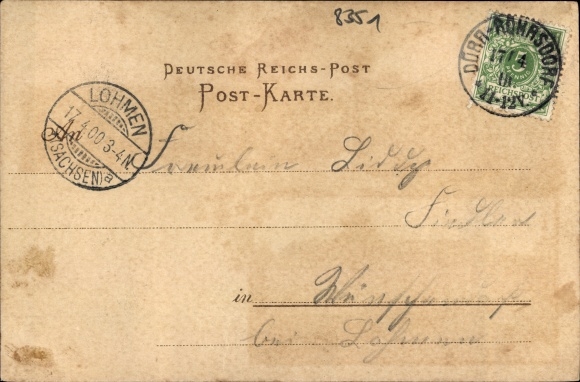 8351
DÜRR-RÖHRSDORF
17 4
11-12V.
REICHSPOST
DEUTSCHE REICHS-POST
POST-KARTE.
LOHMEN
17.4.00 3-4N
(SACHSEN) a
An Fräulein Liddy
Fiedler
in Wünschendorf
bei Lohmen